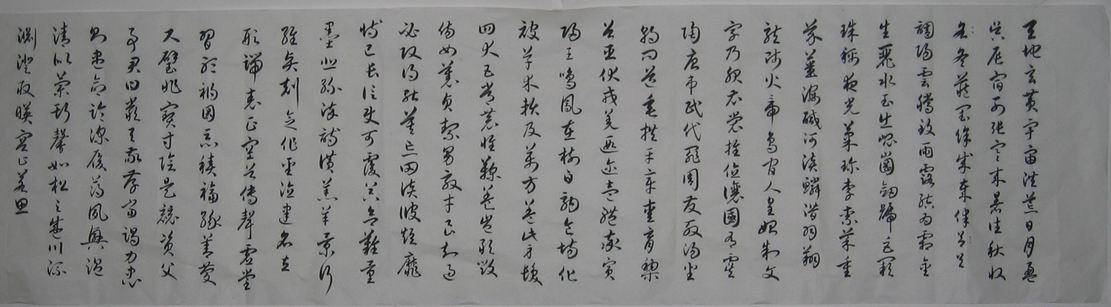 天地玄黃宇宙洪荒日月盈
昃辰宿列張寒來暑往秋收
冬藏閏餘成歲律呂
調陽雲騰致雨露結為霜金
生麗水玉出崑崗劍號巨闕
珠稱夜光菓珍李柰菜重
芥薑海鹹河淡鱗潛羽翔
龍師火帝鳥官人皇始制文
字乃服衣裳推位讓國有虞
陶唐弔民伐罪周發殷湯坐
朝問道垂拱平章愛育黎
首臣伏戎羌遐邇壹體率賓
歸王鳴鳳在樹白駒食場化
被草木賴及萬方蓋此身髮
四大五常恭惟鞠養豈敢毀
傷女慕貞絜男效才良知過
必改得能莫忘罔談彼短靡
恃己長信使可覆器欲難量
墨悲絲染詩讚羔羊景行
維賢剋念作聖德建名立
形端表正空谷傳聲虛堂
習聽禍因惡積福緣善慶
尺璧非寶寸陰是競資父
事君曰嚴與敬孝當竭力忠
則盡命臨深履薄夙興溫
清似蘭斯馨如松之盛川流
淵澄取暎容止若思